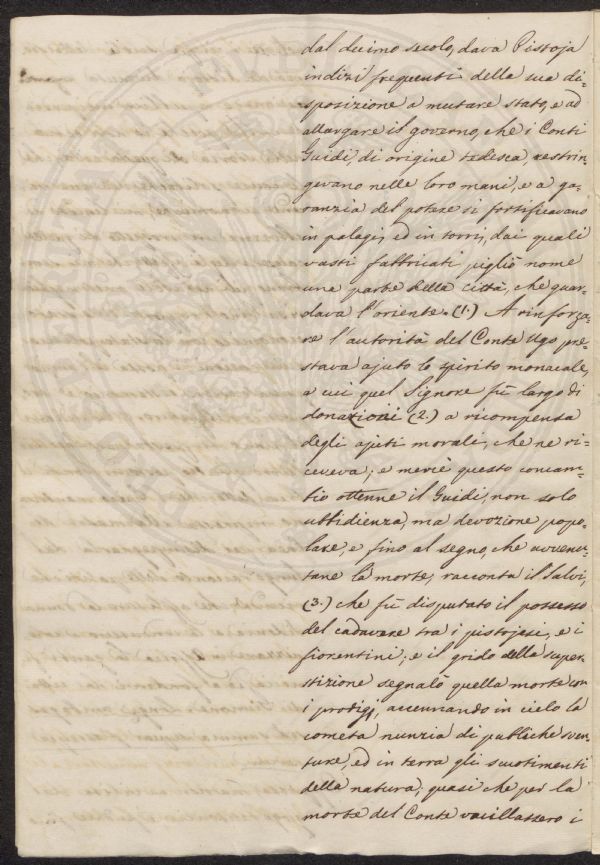 dal decimo secolo, dava Pistoja
indizî frequenti della sua di=
sposizione a mutare stato, e ad
allargare il governo, che i Conti
Guidi, di origine tedesca, restrin=
gevano nelle loro mani, e a ga=
ranzia del potere si fortificavano
in palagi, ed in torri, dai quali
vasti fabbricati pigliò nome
una parte della città, che guar=
dava l'oriente. (1.) A rinforza=
re l'autorità del Conte Ugo pre=
stava ajuto lo spirito monacale,
a cui quel Signore fù largo di
donazioni (2.) a ricompensa
degli ajuti morali, che ne ri=
ceveva; e mercè questo concam=
bio ottenne il Guidi, non solo
ubbidienza, ma devozione popo=
lare, e fino al segno, che avvenu=
tane la morte, racconta il Salvi,
(3.) che fù disputato il possesso
del cadavere tra i pistojesi, e i
fiorentini; e il grido della super=
stizione segnalò quella morte con
i prodigj, accennando in cielo la
cometa nunzia di pubbliche sven=
ture, ed in terra gli scuotimenti
della natura, quasi che per la
morte del Conte vacillassero i